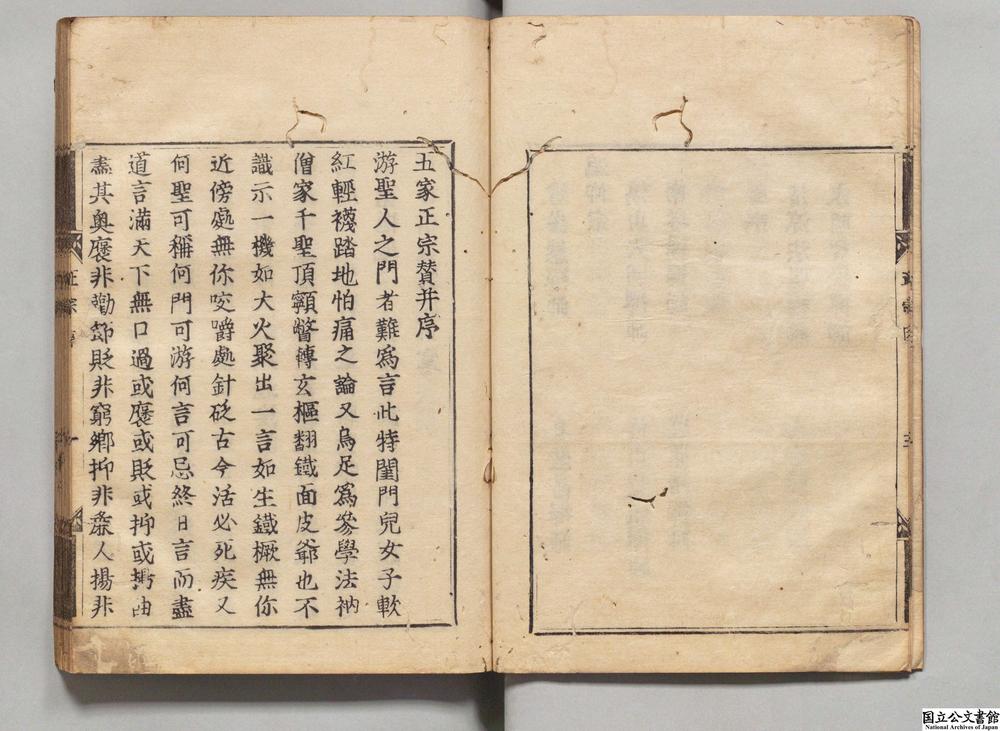 五家正宗贊并序
游聖人之門者難為言此特閨門兒女子軟
紅輕襪踏地怕痛之論又烏足為參學法衲
僧家千聖頂𩕳瞥轉玄樞翻鐵面皮爺也不
識示一機如大火聚出一言如生鐵橛無你
近傍處無你咬嚼處針砭古今活必死疾又
何聖可稱何門可游何言可忌終日言而盡
道言滿天下無口過或褒或貶或抑或揚由
盡其奧褒非勸節貶非窮鄉抑非桼人揚非
正宗 序
一
国立公文書館
National Archives of Japan